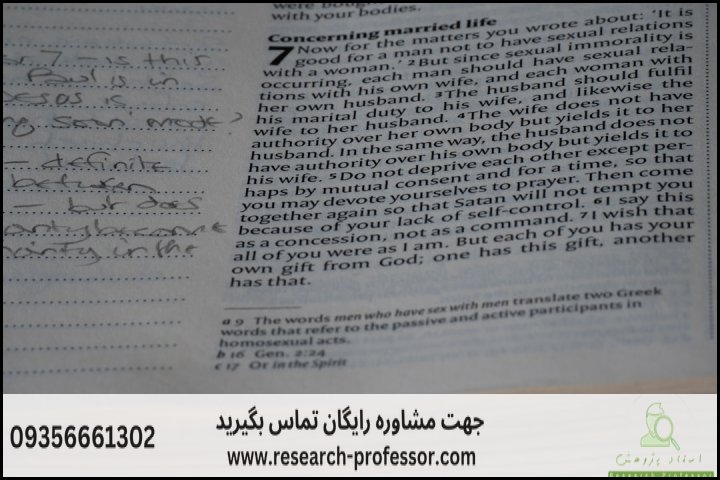 were bought
with your bodies.
Concerning married life
7 Now for the matters you wrote about: 'It is
good for a man not to have sexual relations
with a woman.' 2 But since sexual immorality is
occurring, each man should have sexual rela-
tions with his own wife, and each woman with
her own husband. 3 The husband should fulfil
his marital duty to his wife, and likewise the
wife to her husband. 4 The wife does not have
authority over her own body but yields it to her
husband. In the same way, the husband does not
have authority over his own body but yields it to
his wife. 5 Do not deprive each other except per-
haps by mutual consent and for a time, so that
you may devote yourselves to prayer. Then come
together again so that Satan will not tempt you
because of your lack of self-control. 6 I say this
as a concession, not as a command. 7 I wish that
all of you were as I am. But each of you has your
own gift from God; one has this gift, another
has that.
a 9 The words men who have sex with men translate two Greek
words that refer to the passive and active participants in
homosexual acts.
b 16 Gen. 2:24
c 17 Or in the Spirit
7 – is this
Paul is in
is
– definite
between
– but does
in the
جهت مشاوره رایگان تماس بگیرید
09356661302
www.research-professor.com
استاد پژوهش
Research Professor